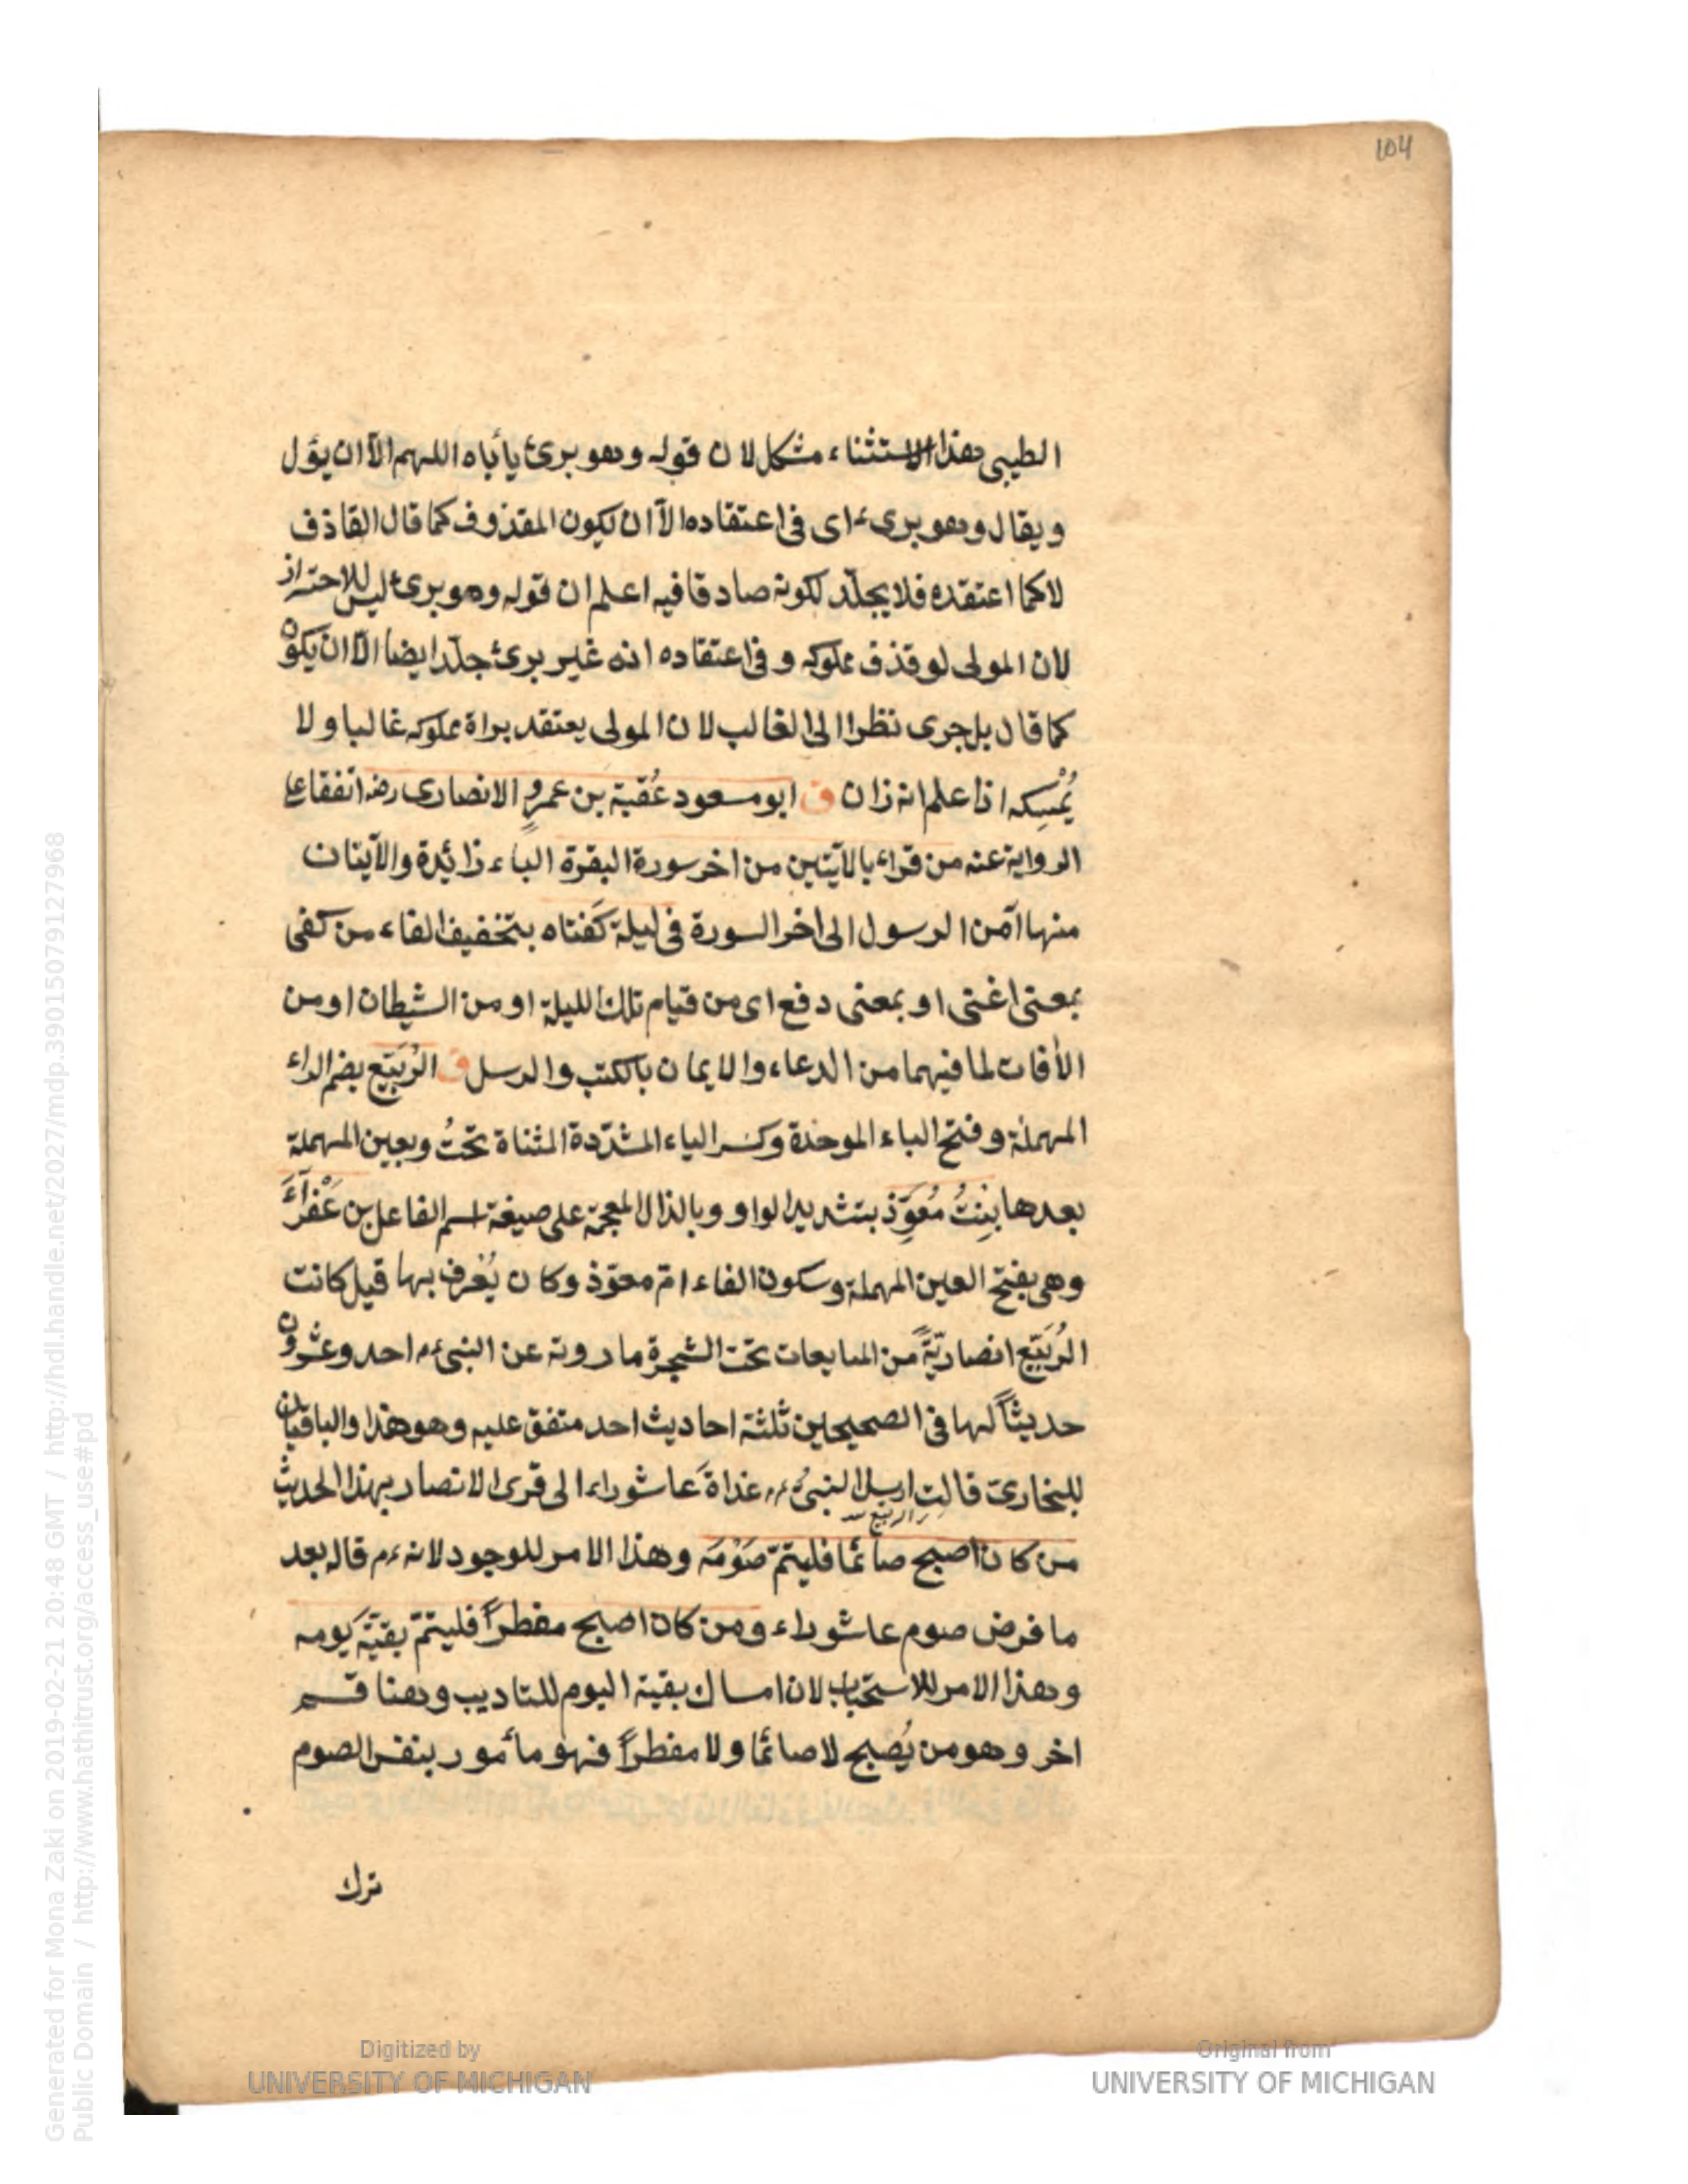 104
الطيبى هذا الاستثناء مشكل لان قوله وهو برئ يأباه اللهم الّا ان يؤل
ويقال وهو برىء اى فى اعتقاده الّا ان يكون المقذوف كما قال القاذف
لا كما اعتقده فلا يجلّد لكونه صادقا فيه اعلم ان قوله وهو برئ ليس للاحتراز
لان المولى لو قذف مملوكه و فى اعتقاده انه غير برئ جلّد ايضا الّا ان يكون
كما قال بل جرى نظرا الى الغالب لان المولى يعتقد براة مملوكه غالبا ولا
يُمْسِكه اذا علم انه زان ق ابو مسعود عُقبة بن عمرٍو الانصارى رضه اتفقا على
الرواية عنه من قراء بالآيتين من اخر سورة البقرة الباء زائدة والآيتان
منها آمن الرسول الى اخر السورة فى ليلة كَفتاه بتخفيف الفاء من كفى
بمعنى اغنى او بمعنى دفع اى من قيام تلك الليلة او من الشيطان او من
الأفات لما فيهما من الدعاء والايمان بالكتب والرسل ق الرُبَيّع بضم الراء
المهملة و فتح الباء الموحدة وكسر الياء المشدّدة المثناة تحتُ وبعين المهملة
بعدها بِنتُ مُعَوِّذ بتشديد الواو وبالذال المعجمة على صيغة اسم الفاعل بن عَفْرآءَ
وهى بفتح العين المهملة وسكون الفاء امّ معوّذ وكان يُعْرف بها قيل كانت
الرُبَيّع انصاريّةً من المبايعات تحت الشجرة ما روته عن النبىء م احد وعشرون
حديثاً لها فى الصحيحين ثلثة احاديث احد متفق عليه وهو هذا والباقيان
للبخارىّ قالت ارسل النبىء م غداةَ عاشوراء الى قرى الانصار بهذا الحديث
اى الربيع
من كان اصبح صائما فليتمّ صَوْمَه وهذا الامر للوجود لانه ءم قاله بعد
ما فرض صوم عاشوراء ومن كان اصبح مفطراً فليتمّ بقيّةَ يومه
وهذا الامر للاستحباب لان امساك بقية اليوم للتاديب وهنا قسم
اخر وهو من يُصبح لا صائما ولا مفطراً فهو مأمور بنفس الصوم
ترك
Generated for Mona Zaki on 2019-02-21 20:48 GMT / http://hdl.handle.net/2027/mdp.39015079127968
Public Domain / http://www.hathitrust.org/access_use#pd
Digitized by
UNIVERSITY OF MICHIGAN
Original from
UNIVERSITY OF MICHIGAN